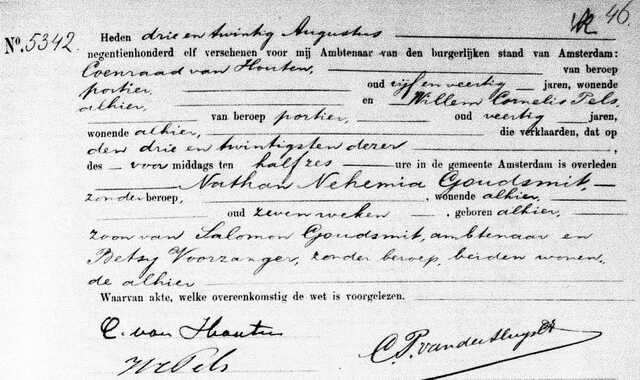 46.
No. 5342.
Heden drie en twintig Augustus
negentienhonderd elf verschenen voor mij Ambtenaar van den burgerlijken stand van Amsterdam:
Coenraad van Houten, van beroep
portier, oud vijf en veertig jaren, wonende
alhier, en Willem Cornelis Pels,
van beroep portier, oud veertig jaren,
wonende alhier, die verklaarden, dat op
den drie en twintigsten dezer
des voor middags ten half zes ure in de gemeente Amsterdam is overleden
Nathan Nehemia Goudsmit,
zonder beroep, wonende alhier,
oud zeven weken, geboren alhier,
zoon van Salomon Goudsmit, ambtenaar en
Betsy Voorzanger, zonder beroep, beiden wonen-
de alhier
Waarvan akte, welke overeenkomstig de wet is voorgelezen.
C. van Houten
W C Pels